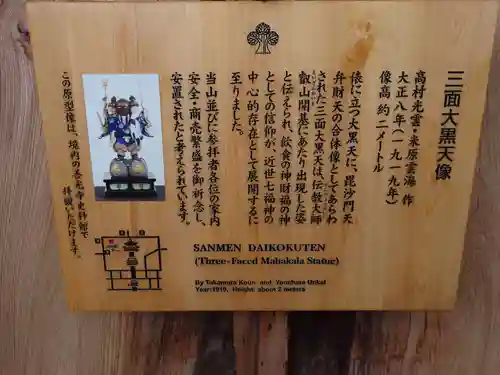 三面大黒天像
高村光雲・米原雲海 作
大正八年（一九一九年）
像高 約二メートル
俵に立つ大黒天に、毘沙門天
弁財天の合体像としてあらわ
された三面大黒天は、伝教大師
叡山開基にあたり出現した姿
と伝えられ、飲食の神財福の神
としての信仰が、近世七福神の
中心的存在として展開するに
至りました。
当山並びに参拝者各位の家内
安全・商売繁盛を御祈念し、
安置されたと考えられています。
この原型像は、境内の善光寺史料館で
拝観いただけます。
SANMEN DAIKOKUTEN
(Three-Faced Mahakala Statue)
By Takamura Koun and Yonehara Unkai
Year:1919, Height: about 2 meters